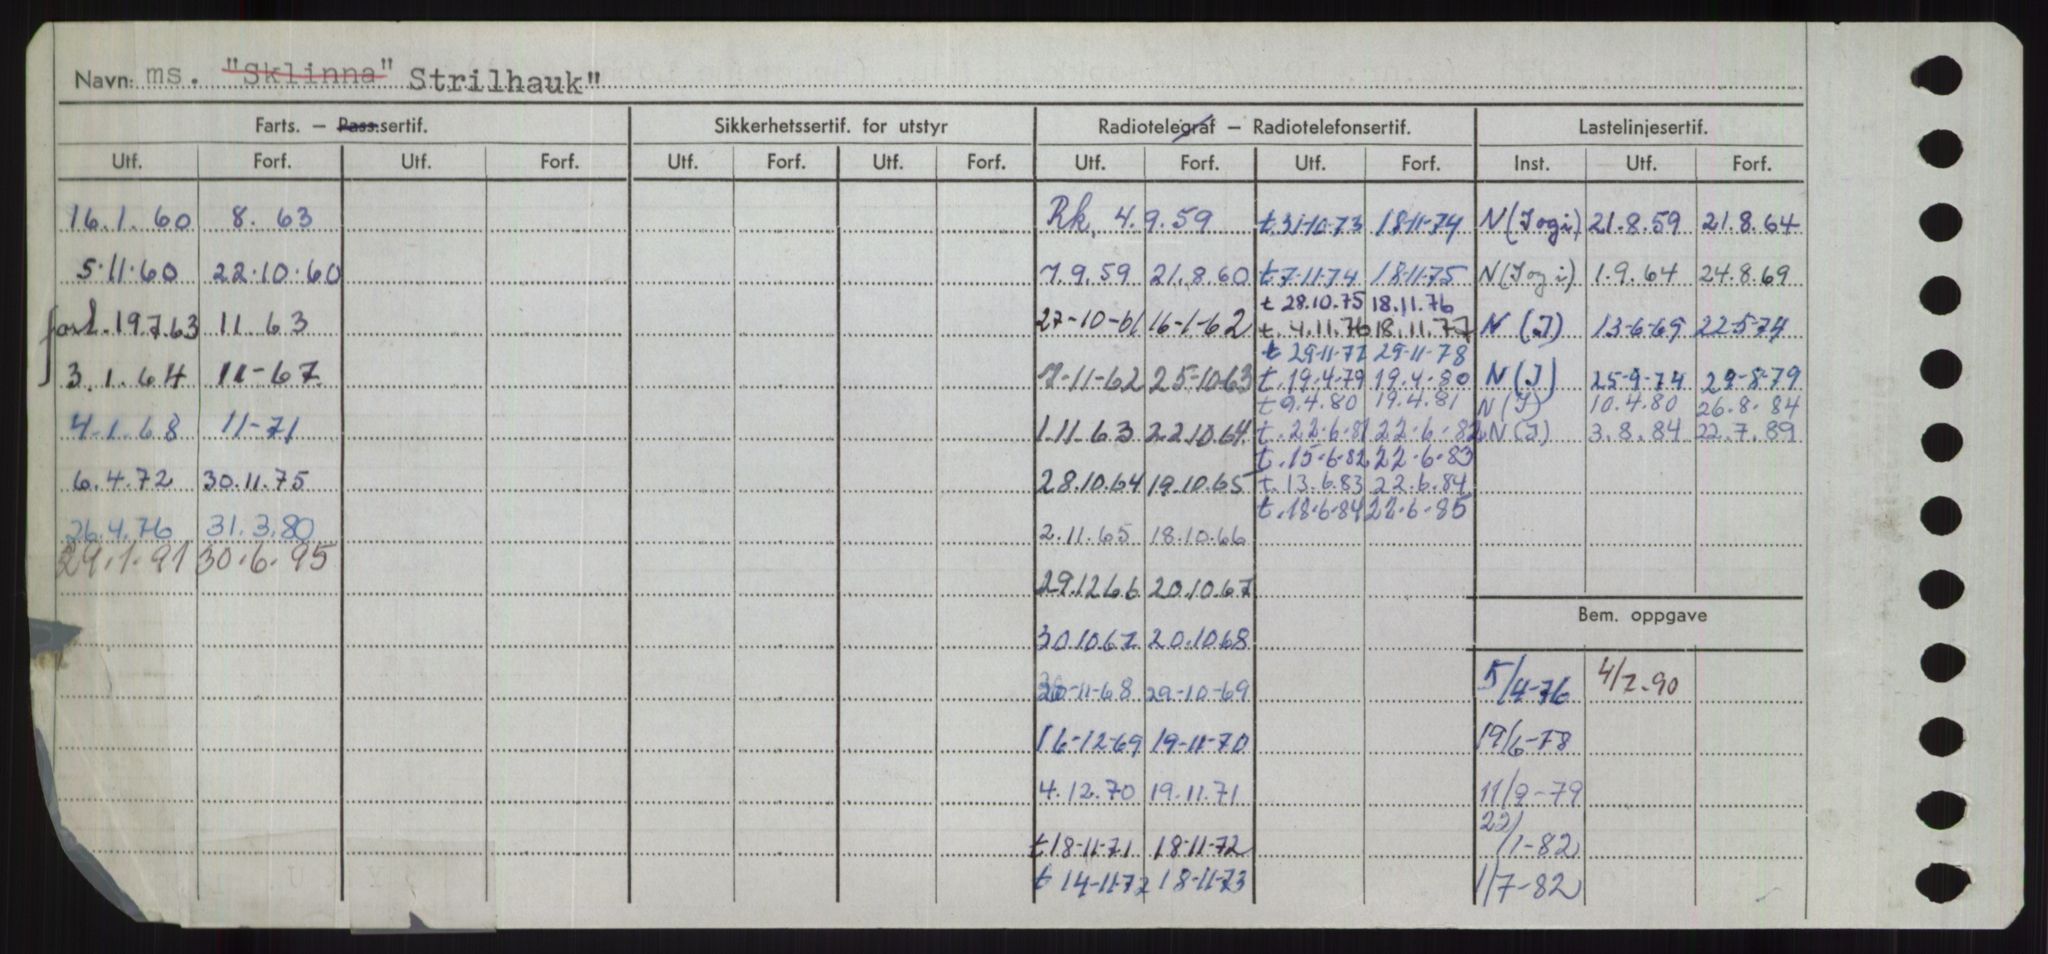 Navn: ms. "Sklinna" Strilhauk"
Farts. — Pass.sertif. Sikkerhetssertif. for utstyr Radiotelegraf — Radiotelefonsertif. Lastelinjesertif.
Utf. Forf. Utf. Forf. Utf. Forf. Utf. Forf. Utf. Forf. Utf. Forf. Inst. Utf. Forf.
16.1.60 8.63 Rk. 4.9.59 t.31-10-73 18-11-74 N(Jogi) 21.8.59 21.8.64
5.11.60 22.10.60 7.9.59 21.8.60 t 7-11-74 18-11-75 N(Jogi) 1.9.64 24.8.69
t 28.10.75 18.11.76
forl. 19.7.63 11.63 27-10-61 16-1-62 t. 4.11.76 18.11.77 N (J) 13-6-69 22-5-74
t 29-11-77 29-11-78
3.1.64 11-67 7-11-62 25-10-63 t.19.4.79 19.4.80 N(J) 25-9-74 29-8-79
t 9.4.80 19.4.81 N(J) 10.4.80 26.8.84
4.1.68 11-71 1.11.63 22.10.64 t.22.6.81 22.6.82 N(J) 3.8.84 22.7.89
t.15.6.82 22.6.83
6.4.72 30.11.75 28.10.64 19.10.65 t.13.6.83 22.6.84
t.18.6.84 22.6.85
26.4.76 31.3.80 2.11.65 18.10.66
29.1.91 30.6.95
29.12.66 20.10.67
Bem. oppgave
30.10.67 20.10.68
-11-68 29-10-69 5/4-76 4/7-90
16-12-69 19-11-70 19/6-78
4.12.70 19.11.71 11/9-79
t 18-11-71 18-11-72 22/1-82
t 14-11-72 18-11-73 1/7-82